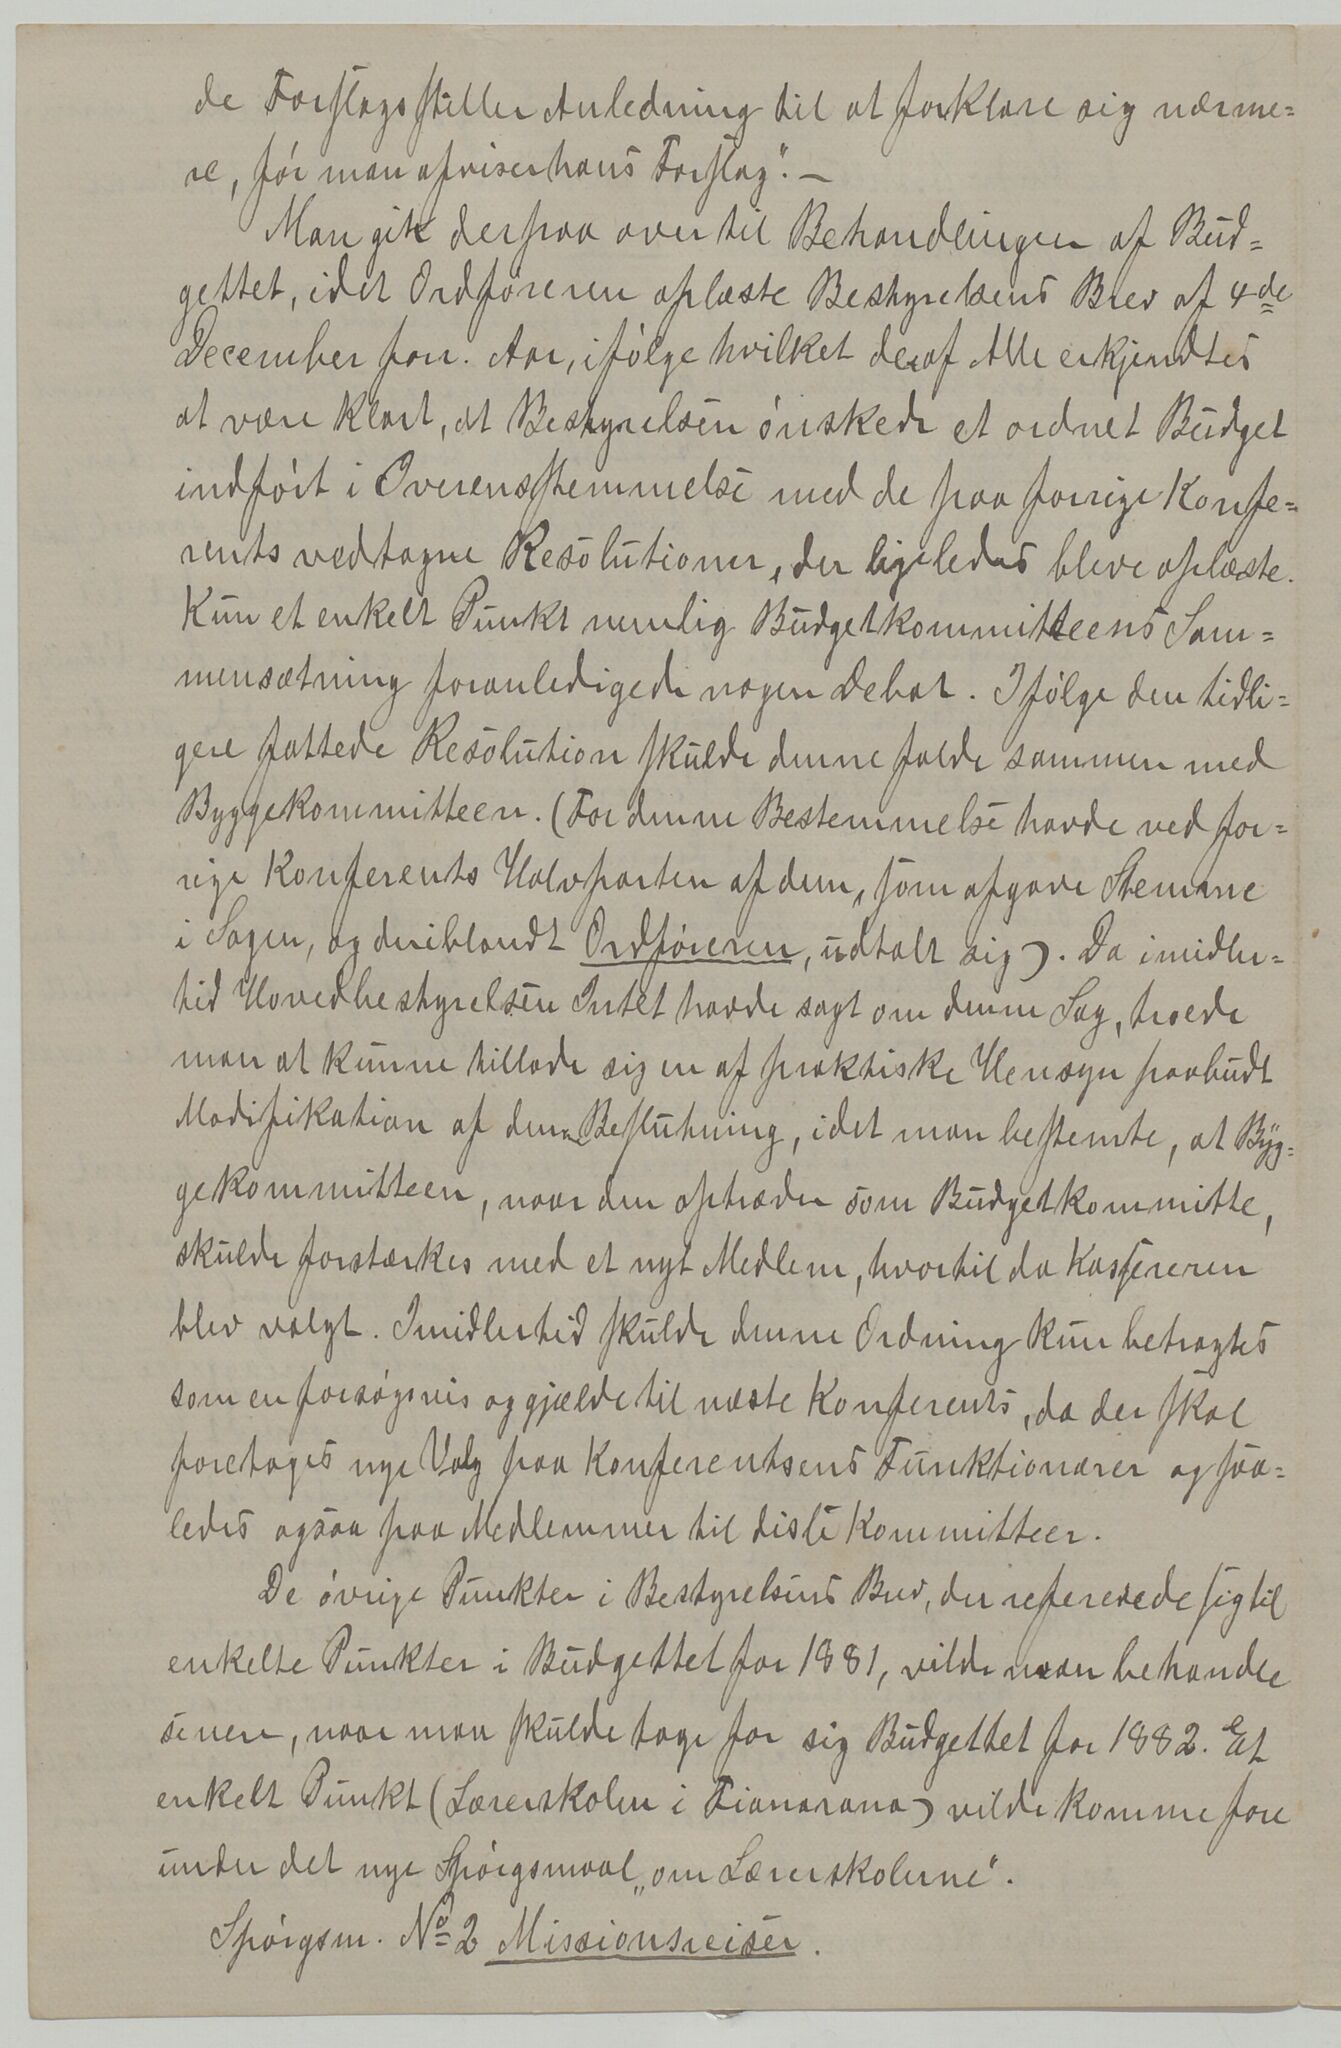 de Forslagsstiller Anledning til at forklare sig nærme=
re, før man afviser hans Forslag". —
Man gik derpaa over til Behandlingen af Bud=
gettet, idet Ordføreren oplæste Bestyrelsens Brev af 4de
December forr. Aar, ifølge hvilket der af Alle erkjendtes
at være klart, at Bestyrelsen ønskede et ordnet Budget
indført i Overensstemmelse med de paa forrige Konfe=
rents vedtagne Resolutioner, der ligeledes bleve oplæste.
Kun et enkelt Punkt nemlig Budgetkommitteens Sam=
mensætning foranledigede nogen Debat. Ifølge den tidli=
gere fattede Resolution skulde denne falde sammen med
Byggekommitteen. (For denne Bestemmelse havde ved for=
rige Konferents Halvparten af dem, som afgave Stemme
i Sagen, og deriblandt Ordføreren, udtalt sig). Da imidler=
tid Hovedbestyrelsen Intet havde sagt om denne Sag, troede
man at kunne tillade sig en af praktiske Hensyn paabudt
Modifikation af denne Beslutning, idet man bestemte, at Byg=
gekommitteen, naar den optræder som Budgetkommitte,
skulde forstærkes med et nyt Medlem, hvortil da Kassereren
blev valgt. Imidlertid skulde denne Ordning kun betragtes
som en forsøgsvis og gjælde til næste Konferents, da der skal
foretages nye Valg paa Konferentsens Funktionærer og saa=
ledes ogsaa paa Medlemmer til disse Kommitteer.
De øvrige Punkter i Bestyrelsens Brev, der refererede sig til
enkelte Punkter i Budgettet for 1881, vilde man behandle
senere, naar man skulde tage for sig Budgettet for 1882. Et
enkelt Punkt (Lærerskolen i Fianarana) vilde komme fore
under det nye Spørgsmaal „om Lærerskolerne".
Spørgsm. No 2 Missionsreiser.